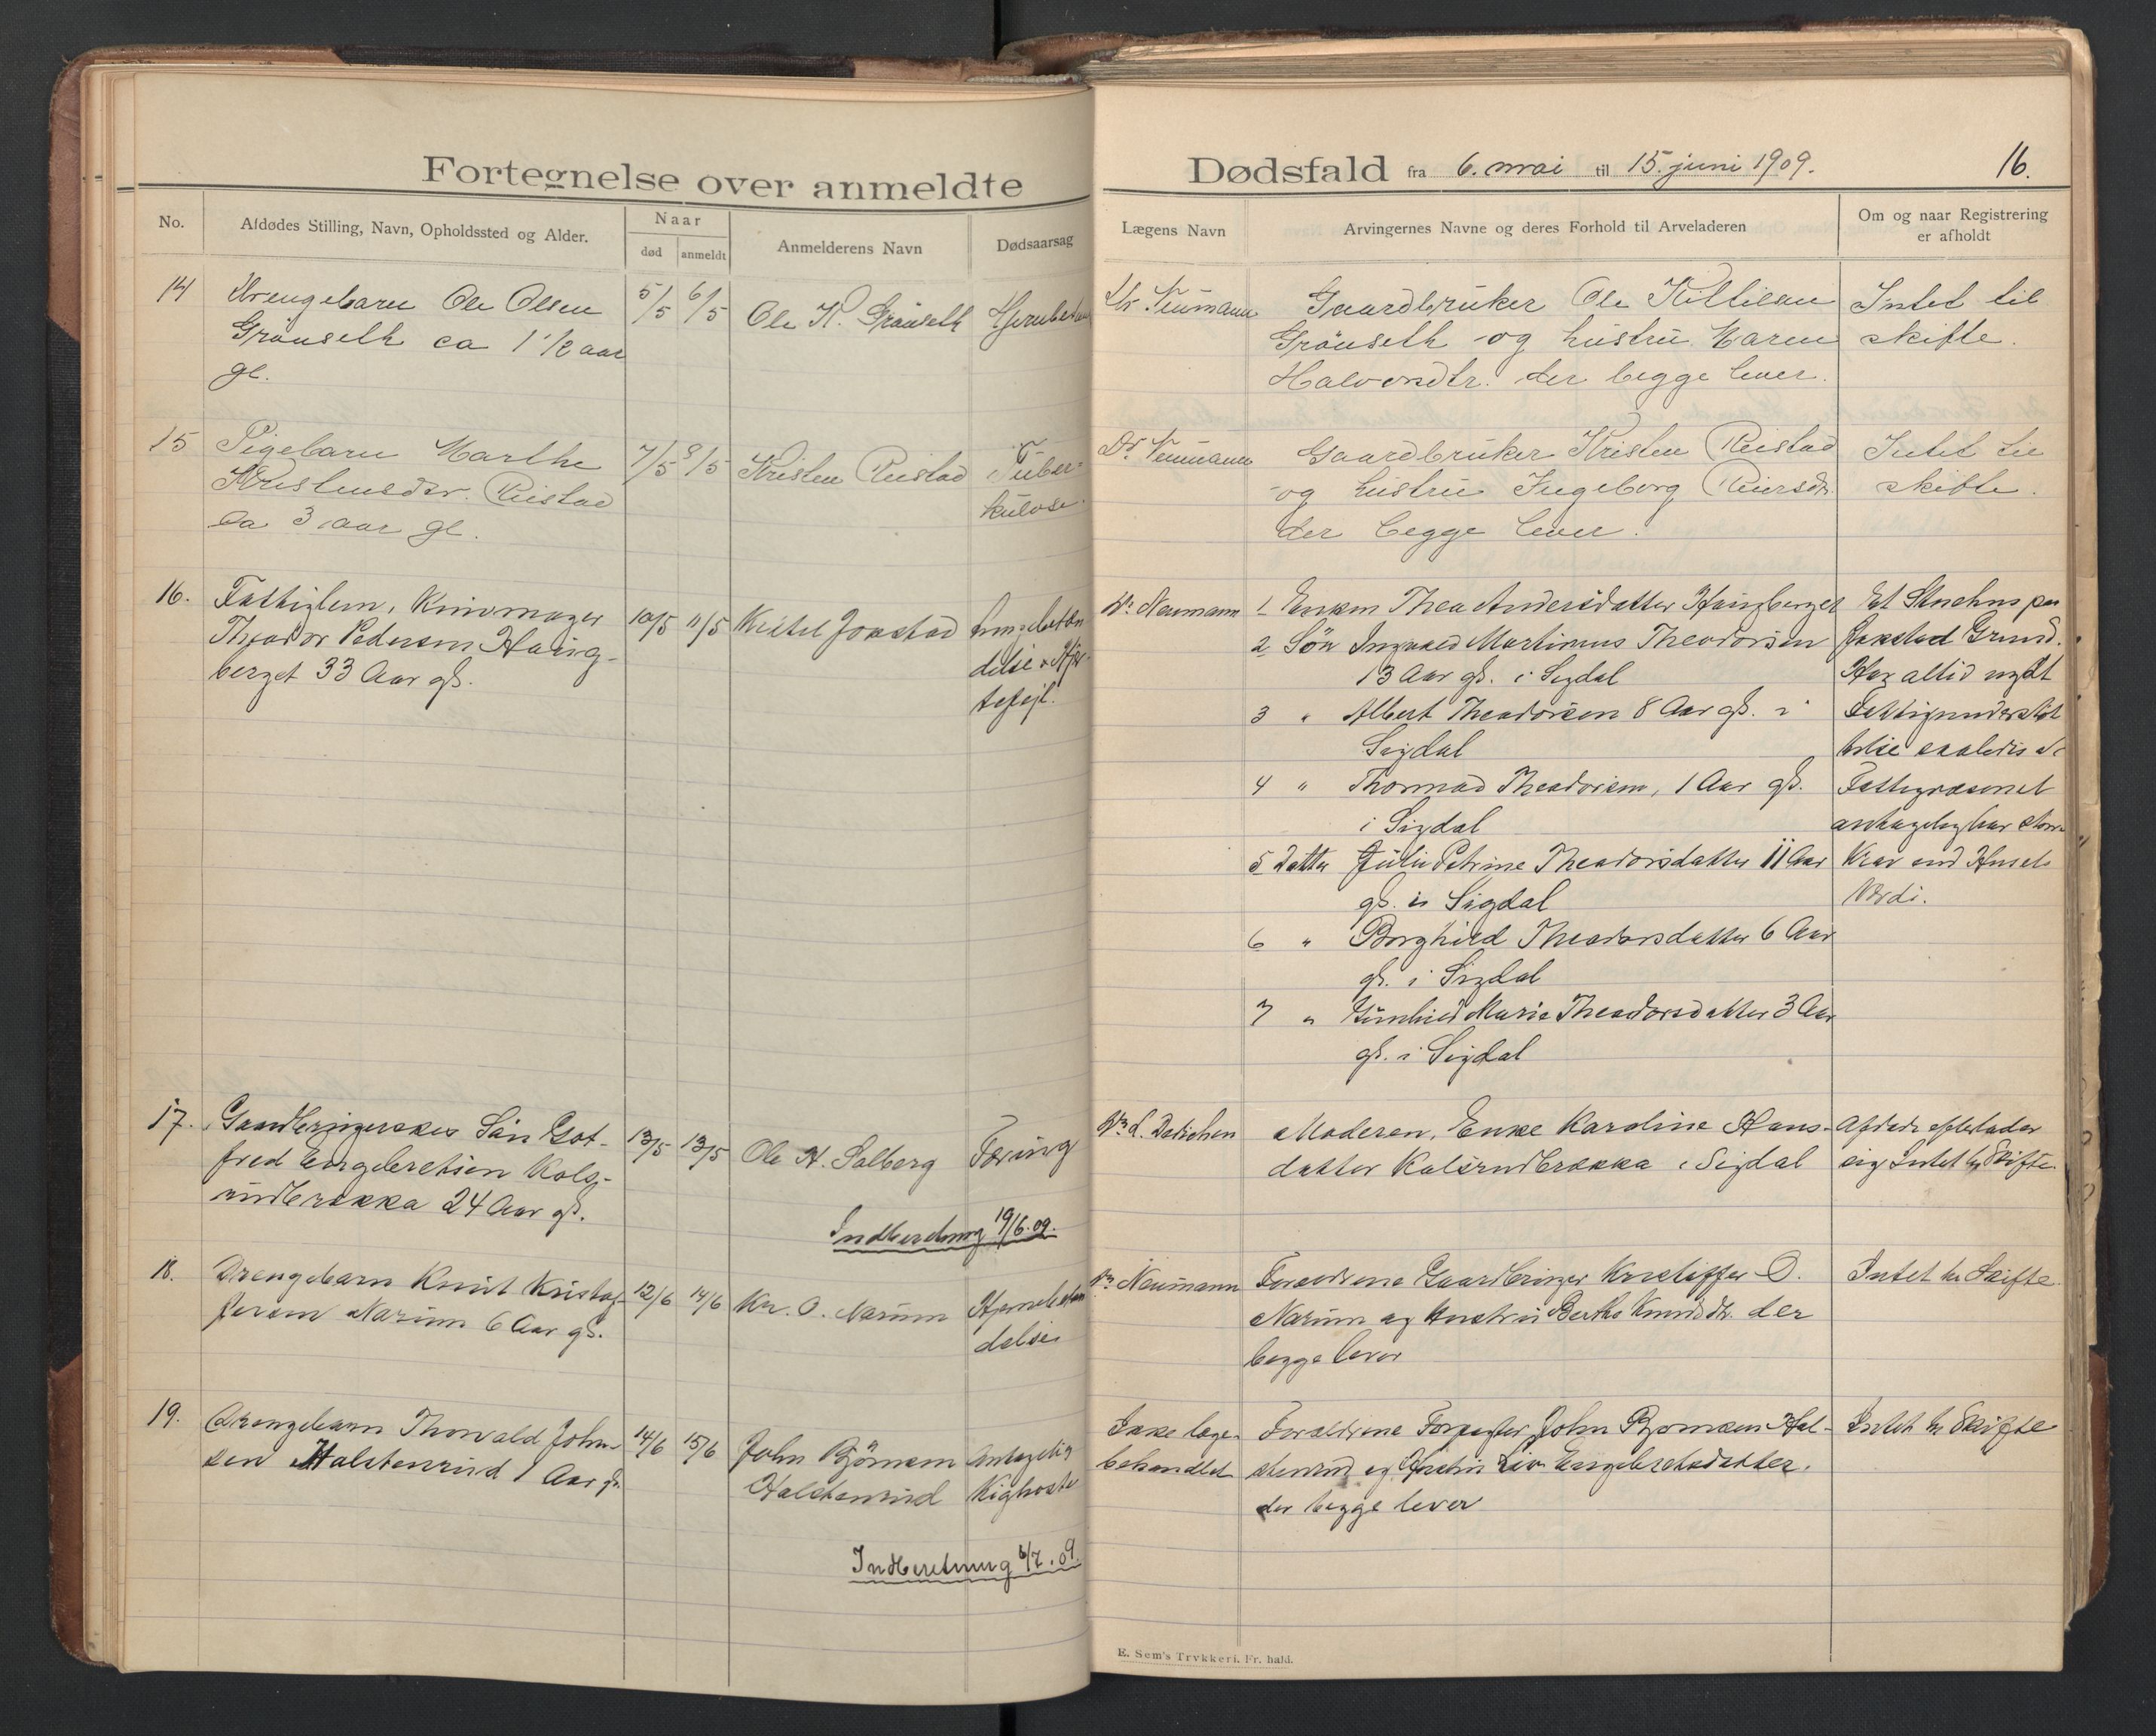 Fortegnelse over anmeldte
No.
Afdødes Stilling, Navn, Opholdssted og Alder.
Naar
død
anmeldt
Anmelderens Navn
Dødsaarsag
14 Drengebarn Ole Olsen 5/5 6/5 Ole K. Grönseth
Grönseth ca 1 1/2 aar
gl.
15 Pigebarn Marthe 7/5 8/5 Kristen Ruistad Tuber-
Kristensdtr. Ruistad kulose.
ca 3 aar gl.
16. Fattiglem, Knivmager 10/5 11/5 Kittel Jokstad Lungebetæn
Theodor Pedersen Haug- delse & Hjer-
berget 33 Aar gl. tefejl.
17. Gaardbrugerskes Sön Got- 13/5 13/5 Ole H. Solberg Tæring
fred Engebretsen Kols-
rudbrækka 24 Aar gl.
Indberetning 19/6.09.
18. Drengebarn Knut Kristof- 12/6 14/6 Kr. O. Narum Hjernebetæn
fersen Narum 6 Aar gl. delse
19. Drengebarn Thorvald John- 14/6 15/6 John Björnsen Antagelig
sen Halstenrud 1 Aar gl. Halstenrud Kighoste
Indberetning 6/7.09.
Dødsfald fra 6. mai til 15. juni 1909. 16.
Lægens Navn
Arvingernes Navne og deres Forhold til Arveladeren
Om og naar Registrering
er afholdt
Dr Neumann Gaardbruker Ole Kittilsen Intet til
Grönseth og hustru Maren skifte.
Halvorsdtr. der begge lever.
Dr. Neumann Gaardbruker Kristen Ruistad Intet til
og hustru Ingeborg Reiersdtr. skifte.
der begge lever.
Dr. Neumann 1 Enken Thea Andersdatter Haugberget Et Stuehus paa
2 Sön Ingvald Martinius Theodorsen Jokstad Grund.
13 Aar gl. i Sigdal Har altid nydt
3 " Albert Theodorsen 8 Aar gl. i Fattigunderstöt
Sigdal telse saaledes at
4 " Thormod Theodorsen, 1 Aar gl. Fattigvæsenet
i Sigdal antagelig har större
5 Datter Julie Petrine Theodorsdatter 11 Aar Krav end Husets
gl. i Sigdal Værdi.
6 " Borghild Theodorsdatter 6 Aar
gl. i Sigdal
7 " Gunhild Marie Theodorsdatter 3 Aar
gl. i Sigdal
Moderen, Enke Karoline Hans- Afdöde efterlader
datter Kolsrudbrækka i Sigdal sig Intet til Skifte.
Dr Neumann Forældrene Gaardbruger Kristoffer O. Intet til Skifte.
Narum og Hustru Berthe Knudsdtr. der
begge lever
Ikke læge- Forældrene Forpagter John Björnsen Hal- Intet til Skifte
behandlet stenrud og Hustru Liv Engebretsdatter.
der begge lever
E. Sem's Trykkeri. Fr. hald.